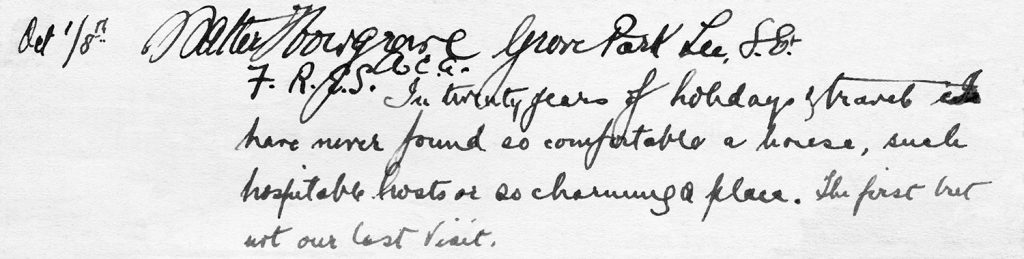 Oct 1/8th Walter Howgrave Grove Park Lee, S.E.
F. R. G. S. A. C. A.
In twenty years of holidays & travel
have never found so comfortable a house, such
hospitable hosts or so charming a place. The first but
not our last visit.